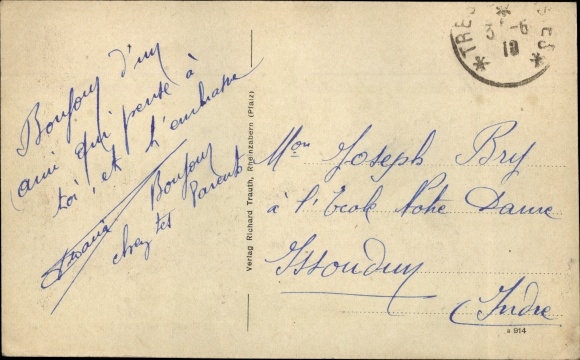 Bonjour d'un
ami qui pense à
toi, et t'embrasse
Bonjour
chez tes Parents
Verlag Richard Trauth, Rheinzabern (Pfalz)
TRES
3 -6
19
Mon Joseph Bry
à l'Ecole Notre Dame
Issoudun
Indre
a 914